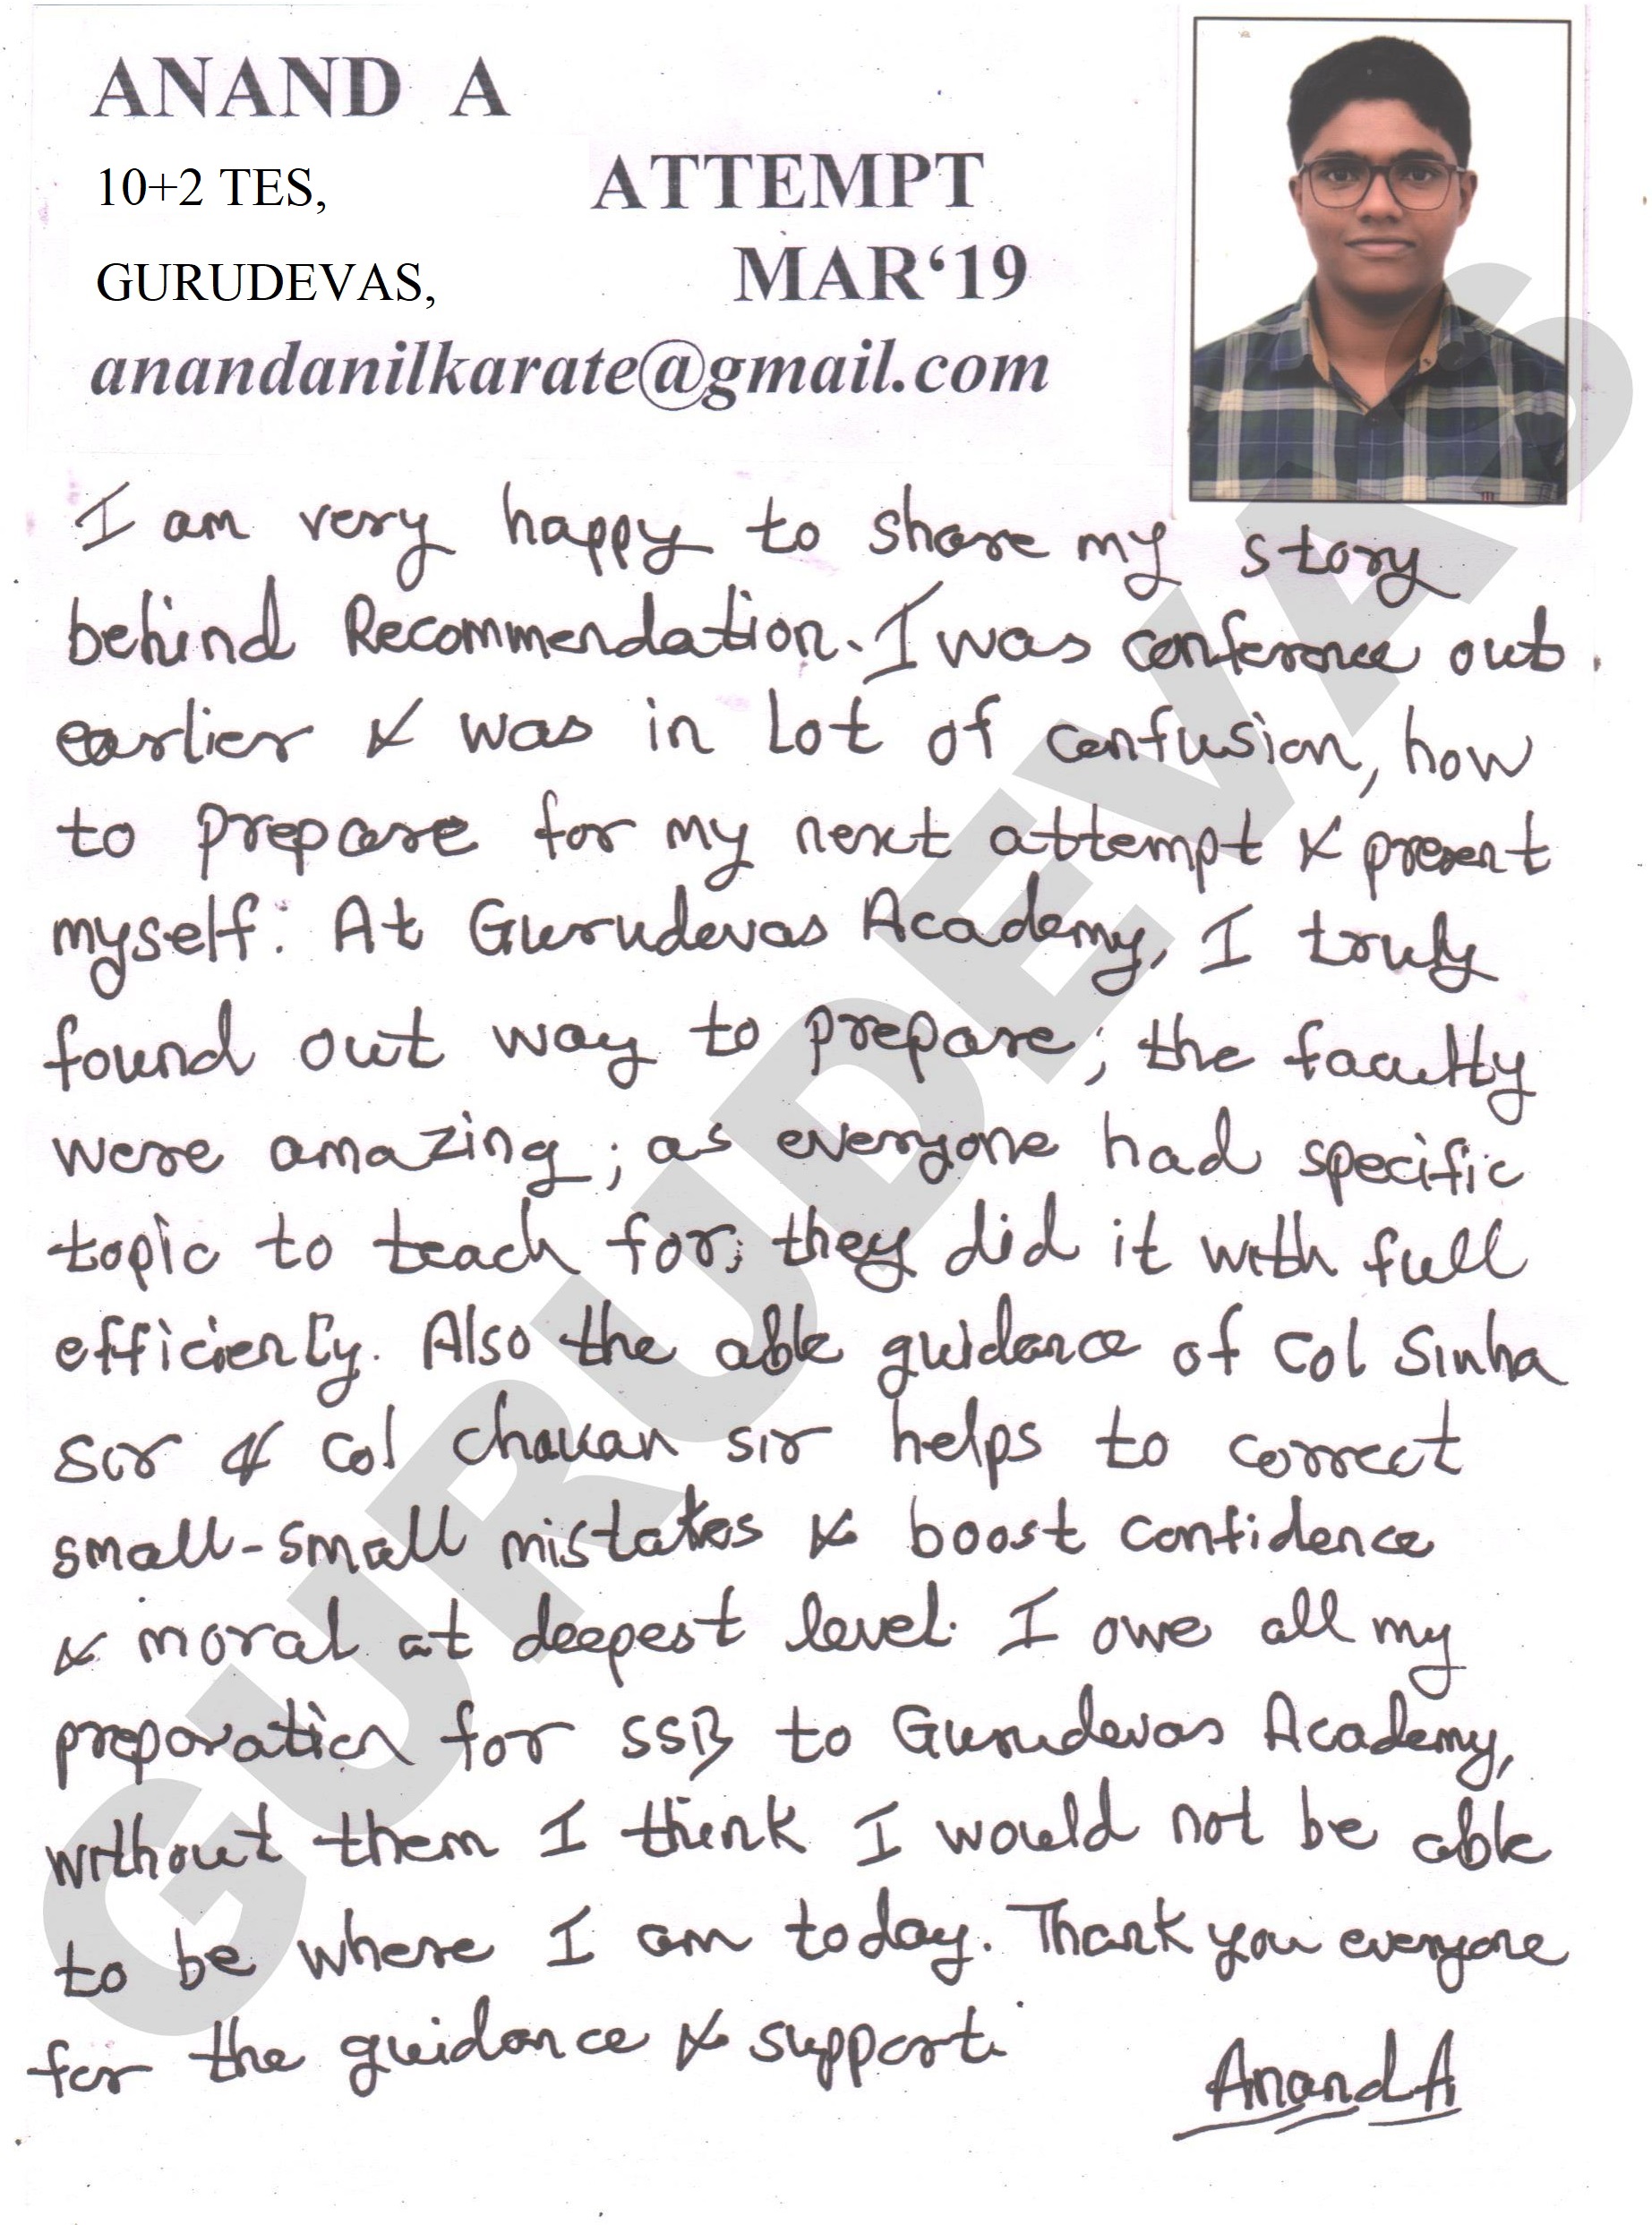 ANAND A
10+2 TES,
ATTEMPT
GURUDEVAS,
MAR‘19
anandanilkarate@gmail.com
I am very happy to share my story
behind Recommendation. I was conference out
earlier & was in Lot of confusion, how
to prepare for my next attempt & present
myself. At Gurudevas Academy, I truly
found out way to prepare; the faculty
were amazing; as everyone had specific
topic to teach for; they did it with full
efficiency. Also the able guidance of Col Sinha
Sir & Col Chavan sir helps to correct
small-small mistakes & boost confidence
& moral at deepest level. I owe all my
preparation for SSB to Gurudevas Academy,
without them I think I would not be able
to be where I am today. Thank you everyone
for the guidance & support.
Anand A
GURUDEVAS